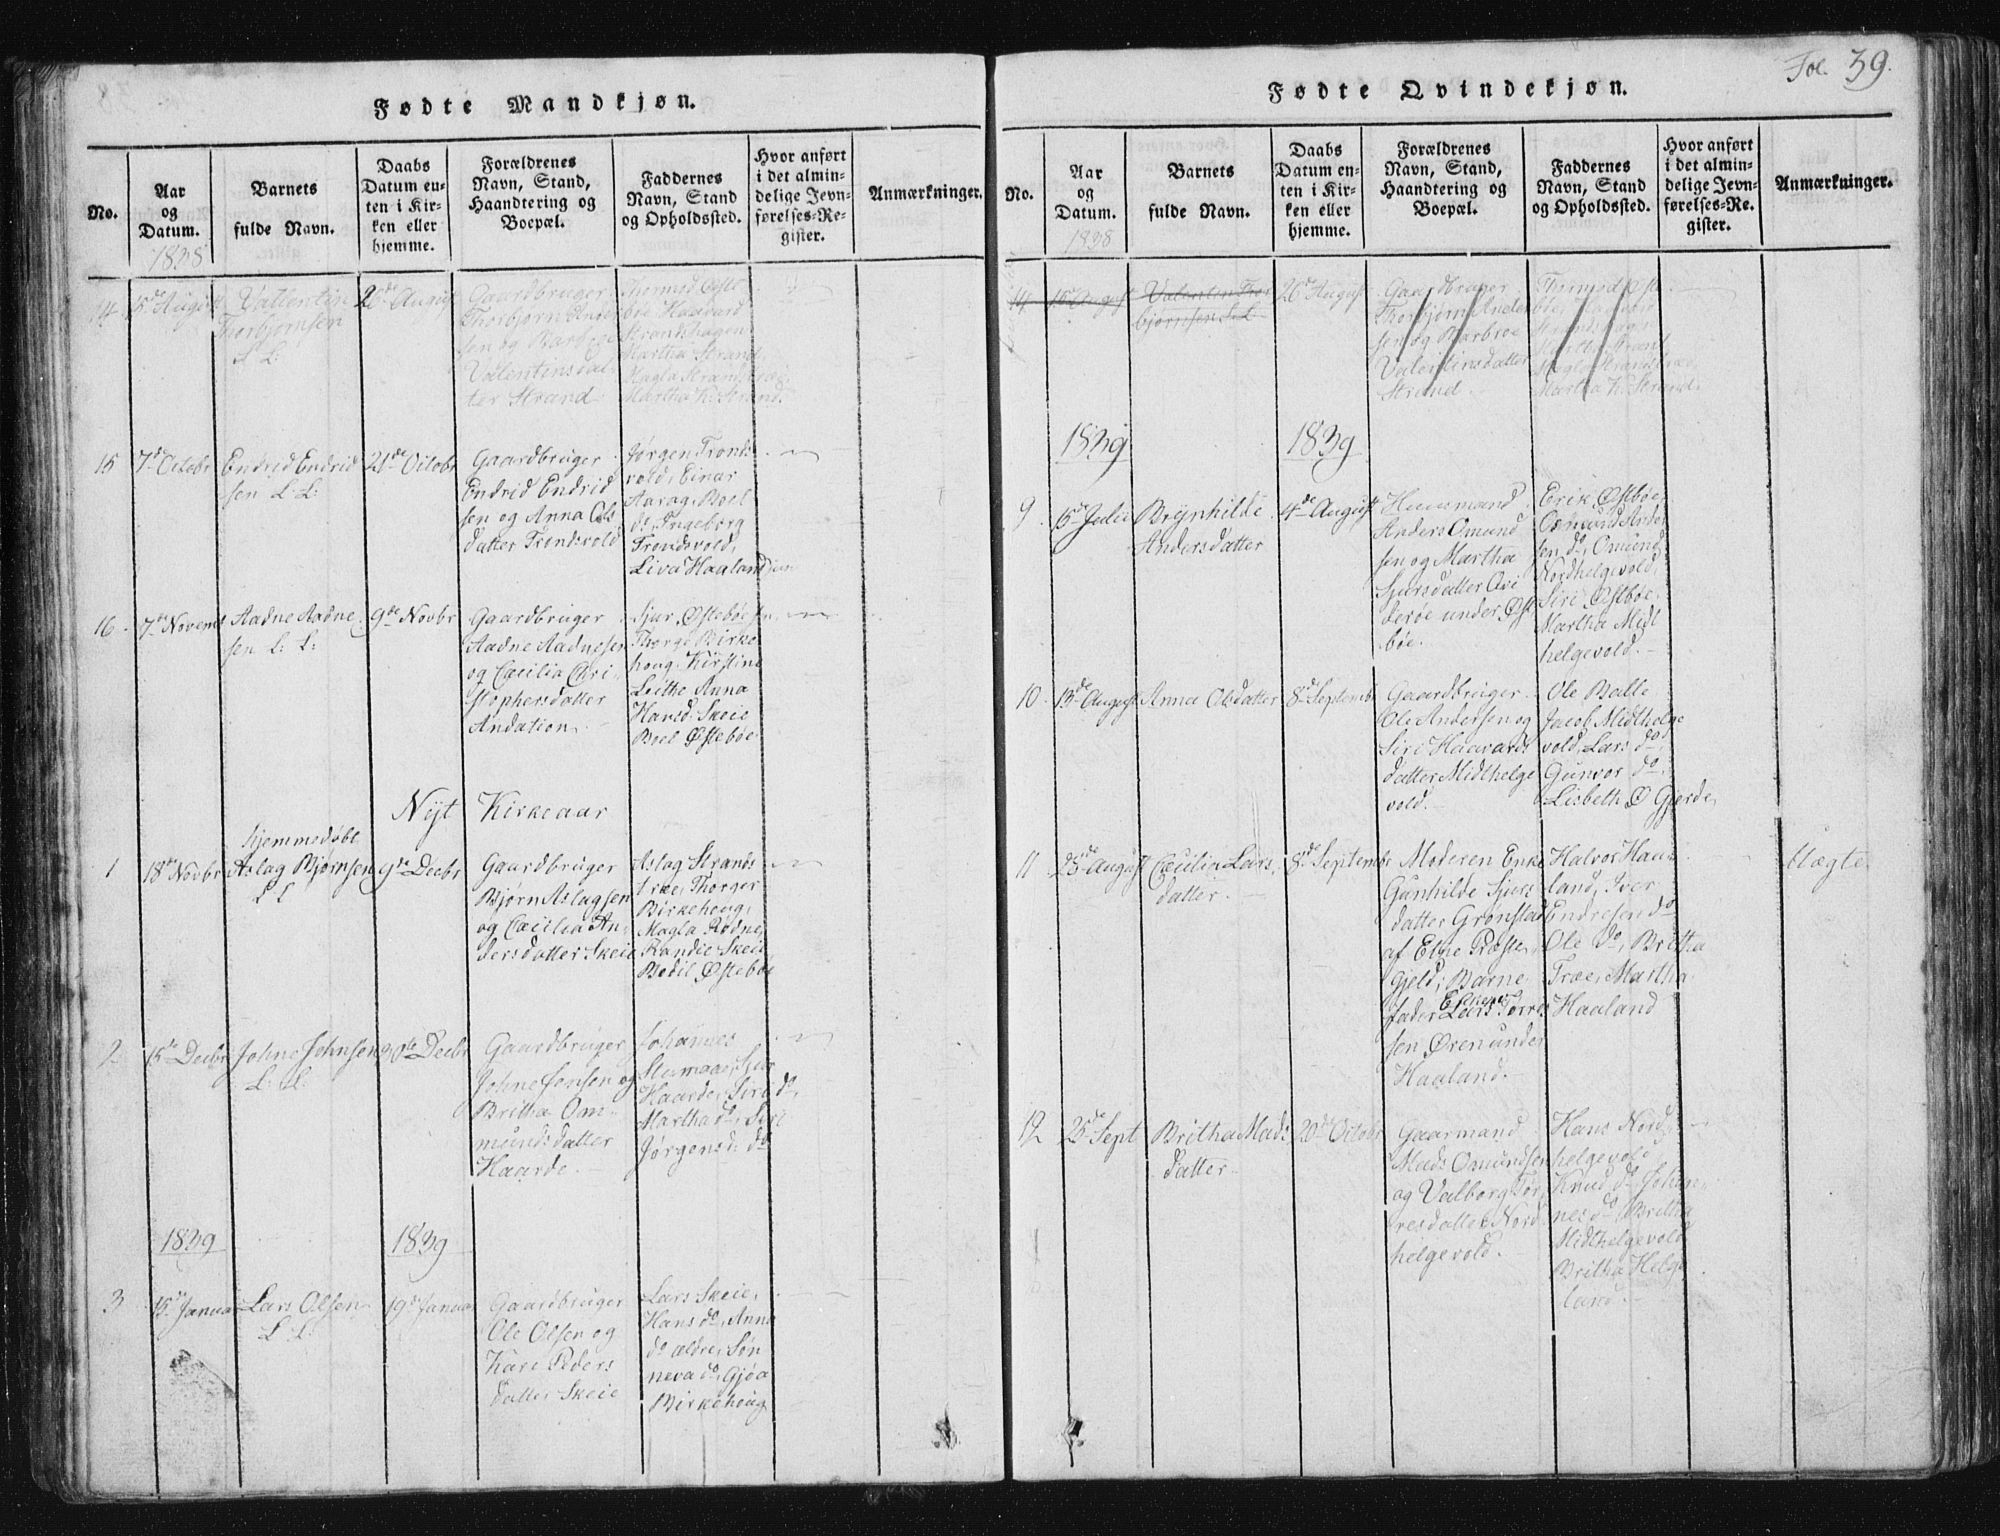 Fødte Mandkjøn.
No.
Aar
og
Datum.
1838
Barnets
fulde Navn.
Daabs
Datum en-
ten i Kir-
ken eller
hjemme.
Forældrenes
Navn, Stand,
Haandtering og
Boepæl.
Faddernes
Navn, Stand
og Opholdssted.
Hvor anført
i det almin-
delige Jevn-
førelses-Re-
gister.
Anmærkninger.
14
15de August
Valentin
Thorbjørnsen
L L:
26de August
Gaardbruger
Thorbjørn Ander
sen og Barbroe
Valentinsdat-
ter Strand
Thormod Øste
bøe Haavard
Strandshagen
Martha Strand,
Magla Strandstræe,
Martha K. Strand.
15
7de Octobr
Endrid Endrid
sen L L:
21de Octobr
Gaardbruger
Endrid Endrid
sen og Anna Ols
datter Trondsvold
Jørgen Tronds
vold, Einar
Aarag, Boel
do, Ingeborg
Trondsvold,
Liva Haaland
16
7de Novemb
Aadne Aadne
sen L: L:
9de Novbr
Gaardbruger
Aadne Aadnesen
og Cæcilia Cri
stophersdatter
Andation
Sjur Østebøe
Thorge Birke
houg, Kirstine
Leithe Anna
Hansd: Skeie
Boel Østebøe
Nyt Kirkeaar
1
18de Novbr
hjemmedøbt
Aslag Bjørnsen
L L
9de Decbr
Gaardbruger
Bjørn Aslagsen
og Cæcilia An-
dersdatter Skeie
Aslag Strands
træe, Thorger
Birkehoug,
Magla Rødne,
Randie Skeie
Bodil Østebøe
2
15de Decbr
Johne Johnsen
L: L:
30te Decbr
Gaardbruger
Johne Jonsen og
Britha Om-
mundsdatter
Haarde.
Johannes
Haarde, Siri do,
Martha do, Siri
Jørgensd: do
1839
1839
3
15de Januar
Lars Olsen
L L:
19de Januar
Gaardbruger
Ole Olsen og
Kari Peders
datter Skeie
Lars Skeie,
Hans do, Anna
do ældre, Søn
neva do, Gjøa
Birkehoug
Fol. 39.
Fødte Qvindekjøn.
No.
Aar
og
Datum.
1838
Barnets
fulde Navn.
Daabs
Datum en-
ten i Kir-
ken eller
hjemme.
Forældrenes
Navn, Stand,
Haandtering og
Boepæl.
Faddernes
Navn, Stand
og Opholdssted.
Hvor anført
i det almin-
delige Jevn-
førelses-Re-
gister.
Anmærkninger.
14
15de August
Valentin Tor
bjørnsen L L
26de August
Gaardbruger
Thorbjørn Ander
sen og Barbroe
Valentinsdatter
Strand.
Martha K. Strand.
1839
1839
9
15de Julii
Brynhilde
Andersdatter
4de August
Huusmand
Anders Omund
sen og Martha
Sjursdatter Qvi
terøe under Øst
bøe.
Erik Østbøe,
Osmund Ander
sen do, Omund
Nordhelgevold,
Siri Østbøe,
Martha Midt
helgevold.
10
13de August
Anna Olsdatter
8de Septembr
Gaardbruger
Ole Andersen og
Siri Haavards
datter Midthelge
vold.
Ole Balle
Jacob Midthelge
vold, Lars do,
Gunvor do,
Lisbeth Ø Gjerde,
11
23de August
Cæcilia Lars
datter.
8de Septembr
Moderen Enke
Gunhilde Sjurs
datter Grønstad
af Etne Præste-
gjeld; Barne-
fader Lars Torres
sen Øren under
Haaland.
Halvor Haa-
land, Iver
Endresen do
Ole do, Britha
Træe, Martha
Haaland
Uægte.
12
25de Sept
Britha Mads
datter.
20de Octobr
Gaarmand
Mads Omundsen
og Valborg Tor
resdatter Nord
helgevold.
Hans Nord
helgevold,
Knud do, Johan
nes do, Britha
Midthelgevold
Britha Helge
land.